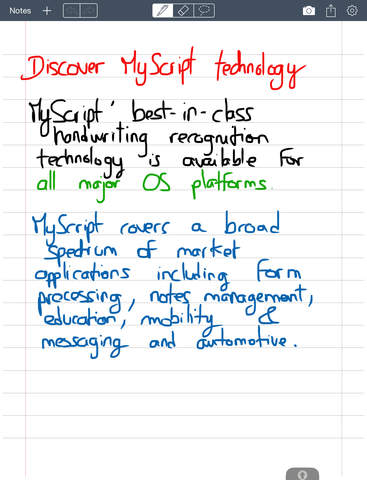 Notes
Discover MyScript technology
MyScript' best-in-class
handwriting recognition
technology is available for
all major OS platforms.
MyScript covers a broad
spectrum of market
applications including form
processing, notes management,
education, mobility &
messaging and automotive.